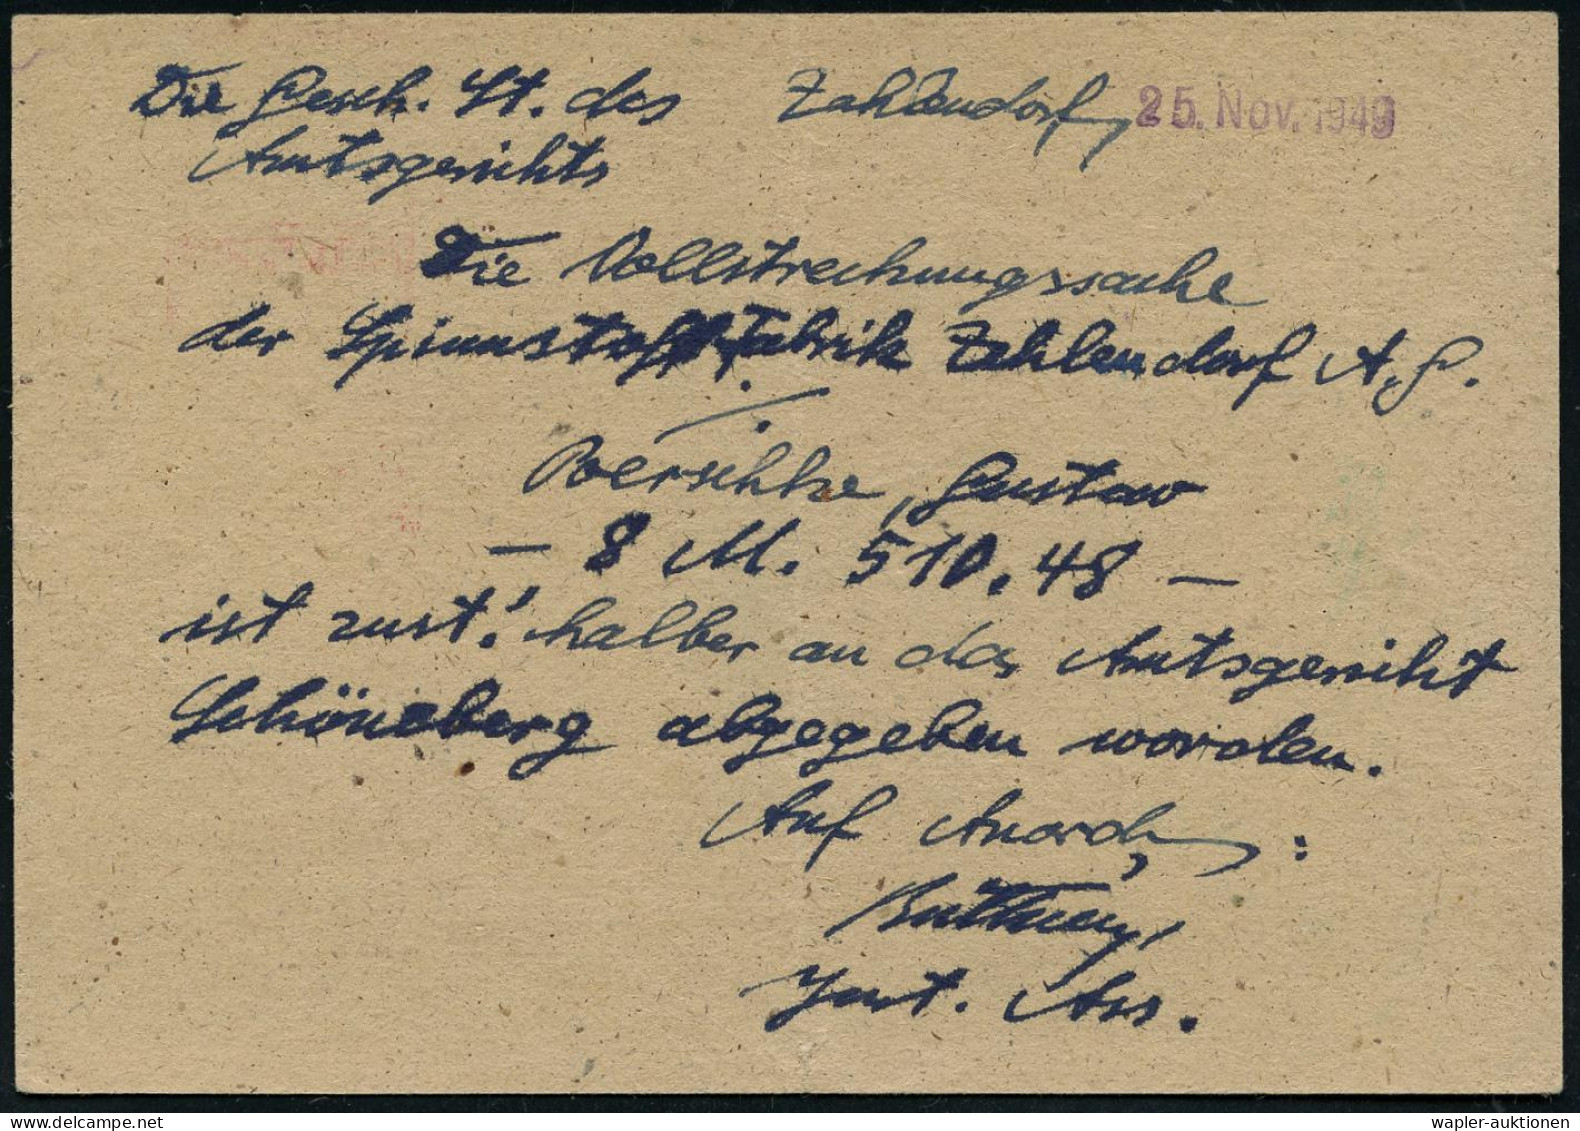 Die Gesch. St. des Zehlendorf, 25. Nov. 1949
Amtsgerichts
Die Vollstreckungssache
der Spinnstofffabrik Zehlendorf A.G.
./.
Gustav
- 8 M. 510.48 -
ist zust.' halber an das Amtsgericht
Schöneberg abgegeben worden.
Auf Anordn:
Just. Ass.
wapler-auktionen